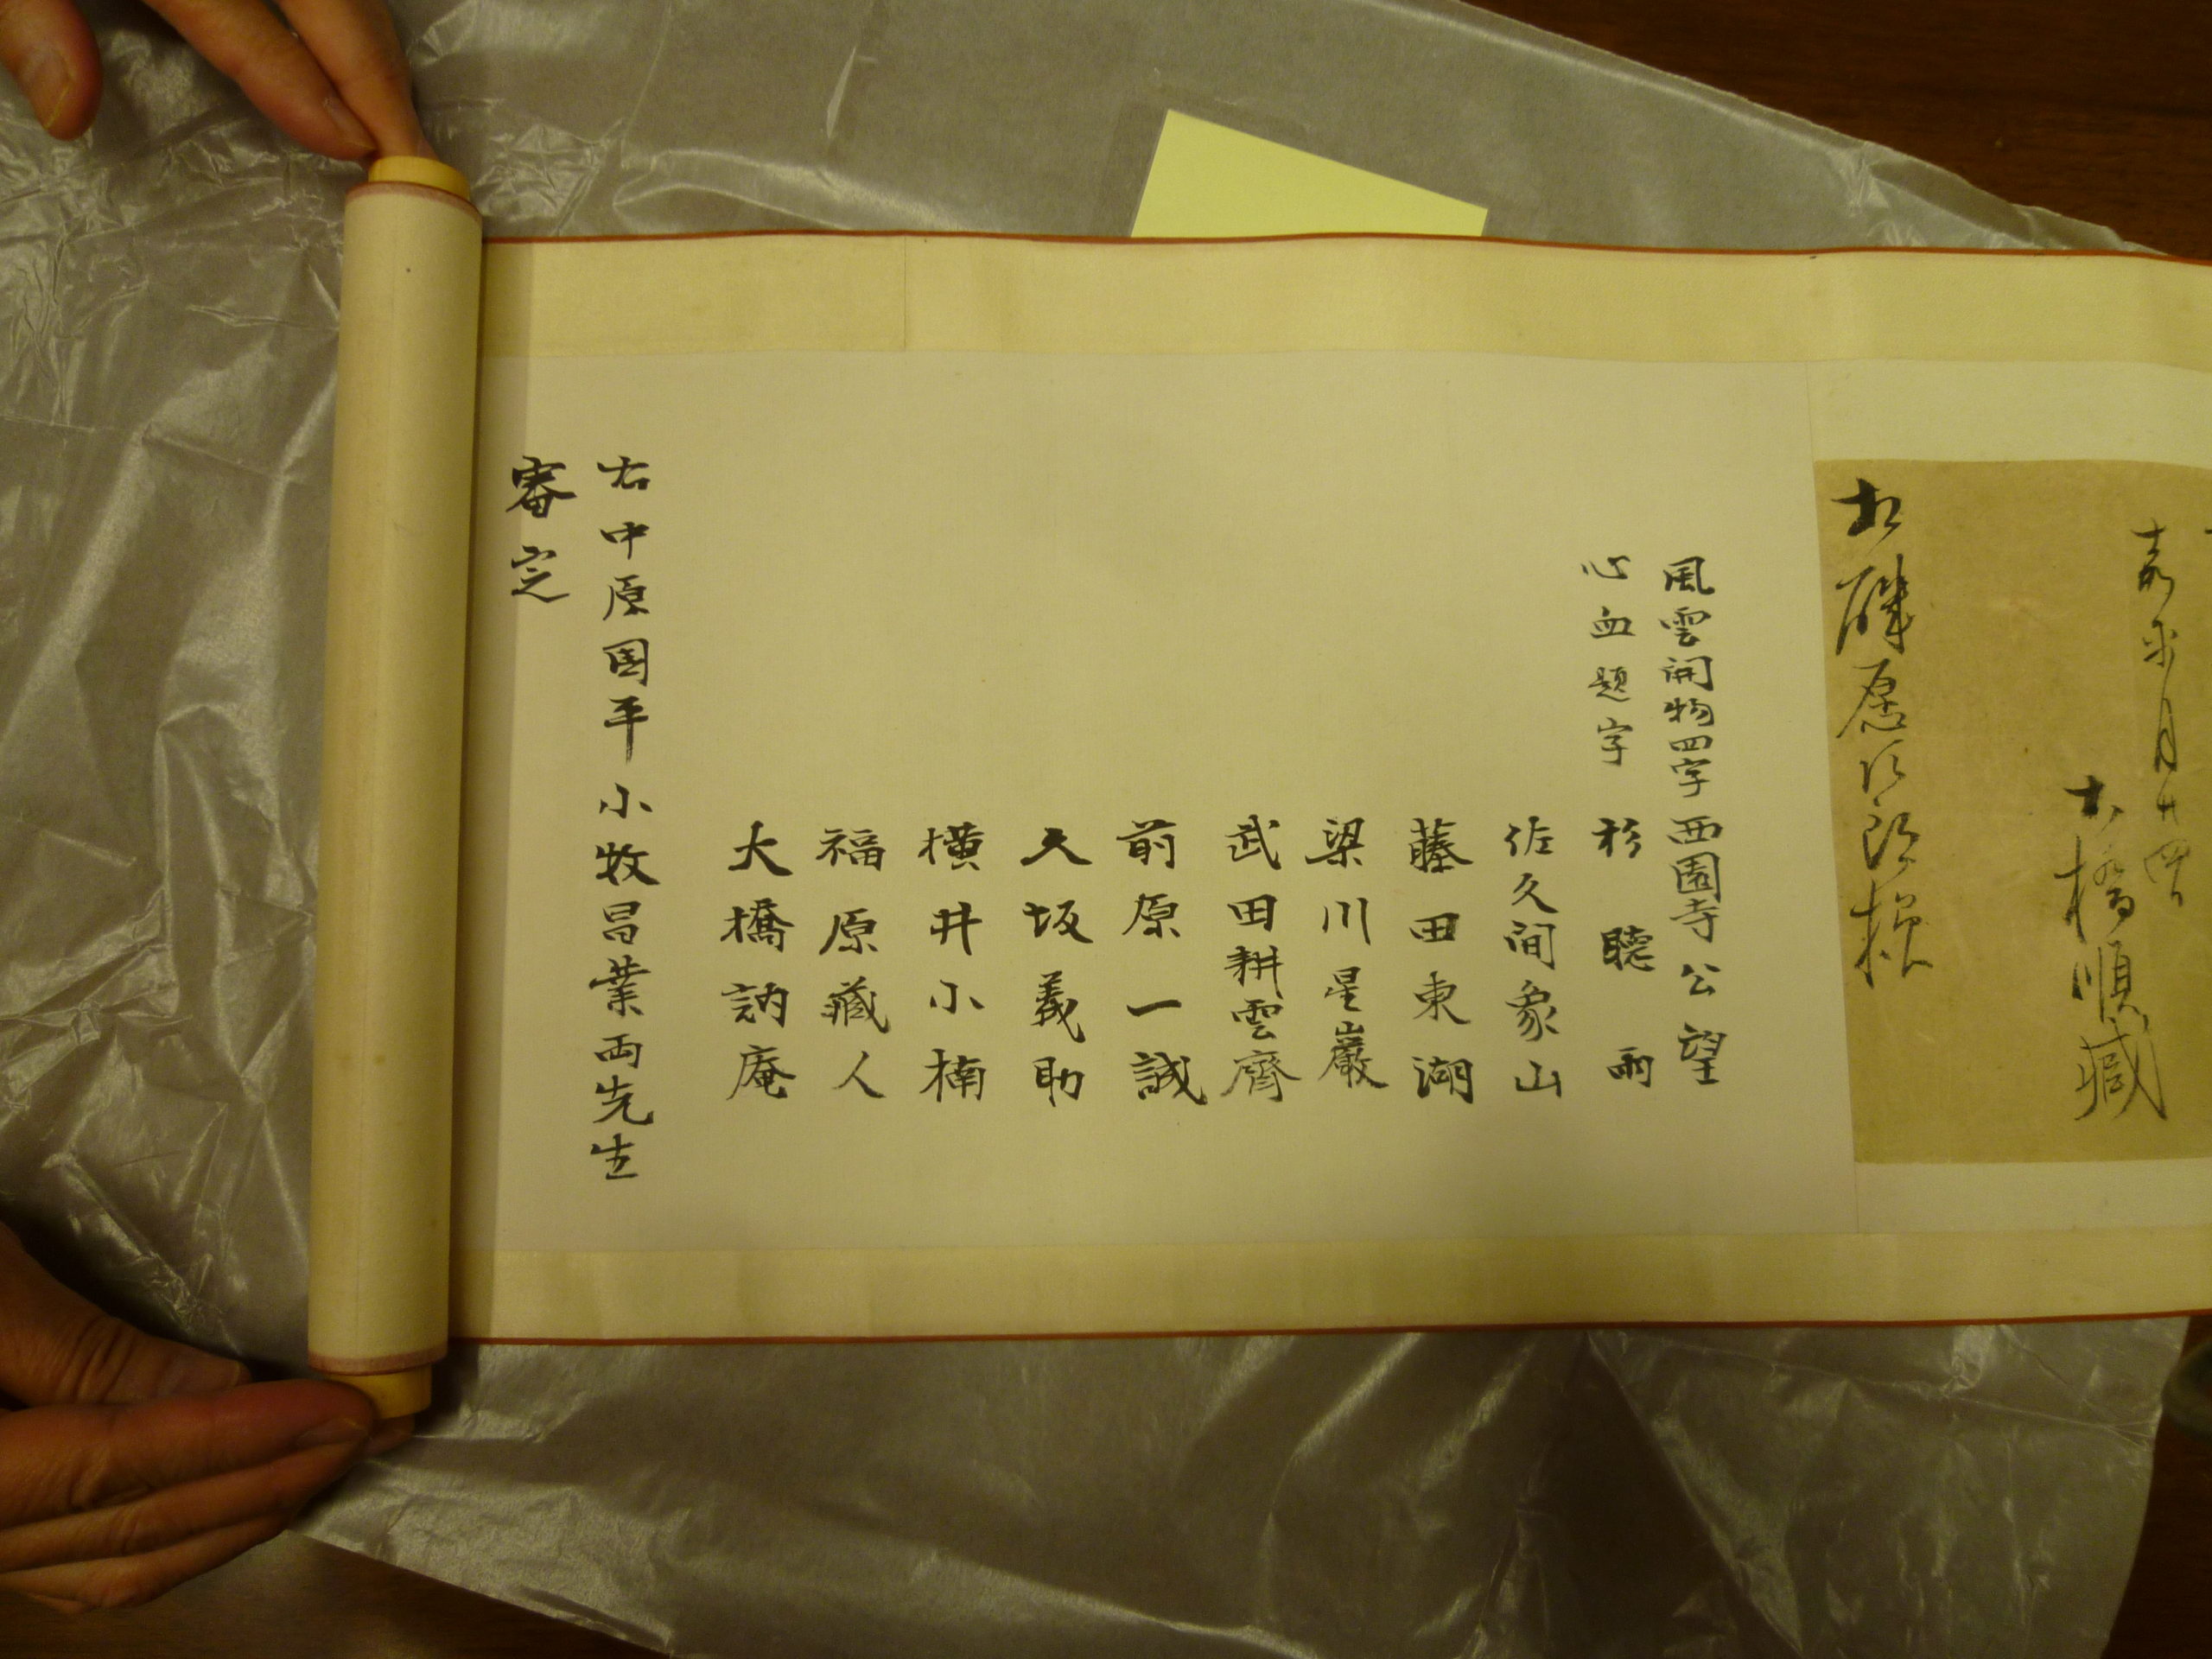 大橋順蔵
風雲開物四字 西園寺公望
心血題字 杉聴雨
佐久间象山
藤田東湖
梁川星巖
武田耕雲齋
前原一誠
久坂義助
横井小楠
福原蔵人
大橋訥庵
右中原国平小牧昌業両先生
審定